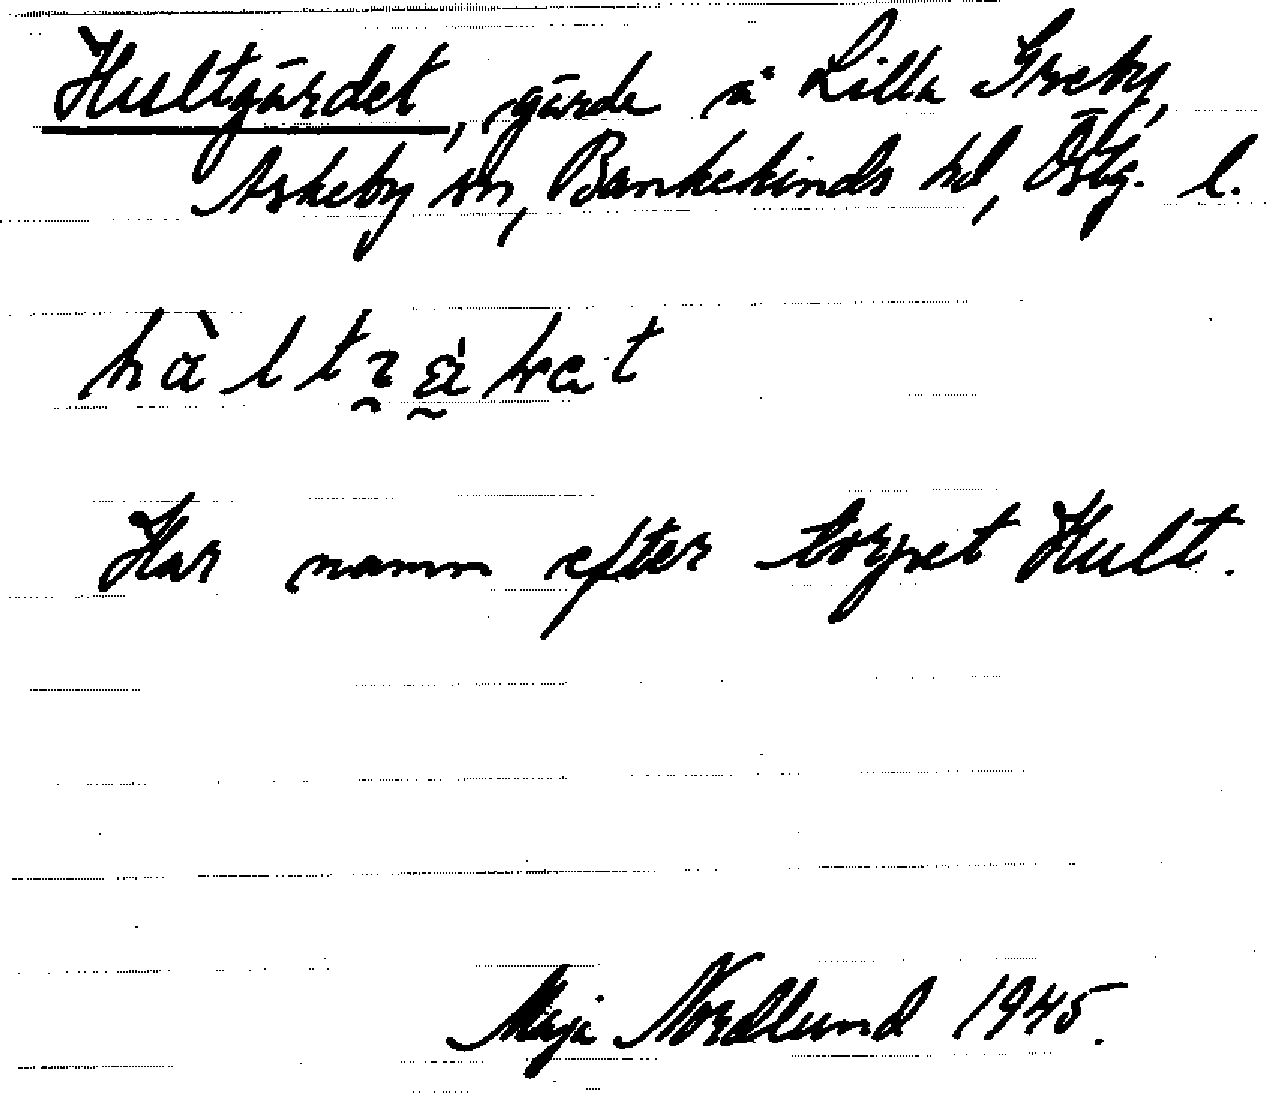 Hultgärdet, gärde å Lilla Greby,
Askeby sn, Bankekinds hd, Östg. l.
Har namn efter torpet Hult.
Maja Nordlund 1945.